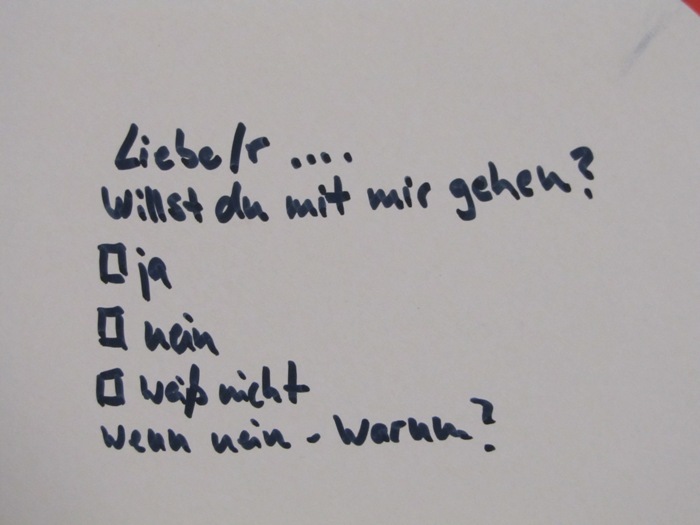 Liebe/r ....
Willst du mit mir gehen?
ja
nein
weiß nicht
wenn nein - warum?